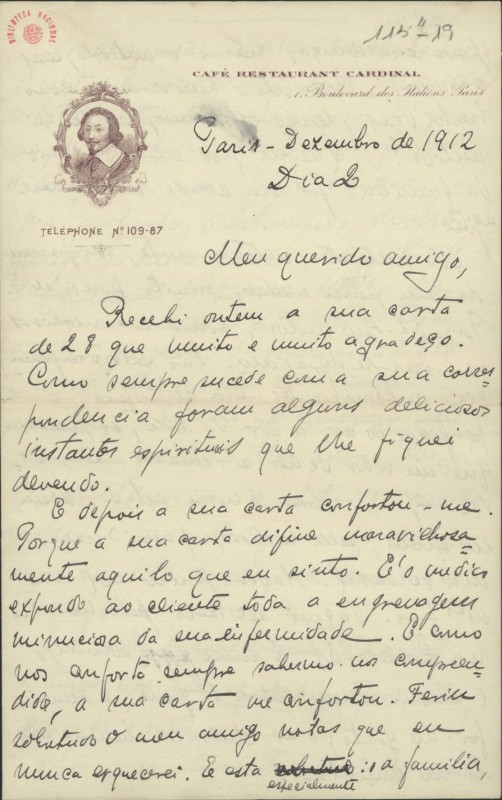 BIBLIOTECA NACIONAL
115⁴-19
CAFÉ RESTAURANT CARDINAL
1, Boulevard des Italiens Paris
TÉLÉPHONE Nº 109-87
Paris - Dezembro de 1912
Dia 2
Meu querido amigo,
Recebi ontem a sua carta
de 28 que muito e muito agradeço.
Como sempre sucede com a sua corres-
pondencia foram alguns deliciosos
instantes espirituais que lhe fiquei
devendo.
E depois a sua carta confortou-me.
Porque a sua carta difine maravilhosa-
mente aquilo que eu sinto. É o medico
expondo ao cliente toda a engrenagem
minuciosa da sua enfermidade. E como
nos conforta sempre sabermo-nos compreen-
didos, a sua carta me confortou. Feriu
sobretudo o meu amigo notas que eu
nunca esquecerei. E esta especialmente: a familia,